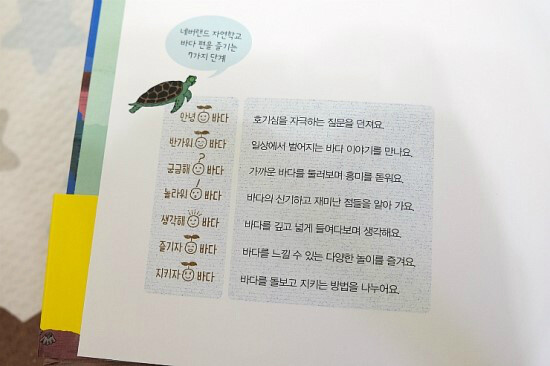 네버랜드 자연학교
바다 편을 즐기는
7가지 단계
안녕 바다 호기심을 자극하는 질문을 던져요.
반가워 바다 일상에서 벌어지는 바다 이야기를 만나요.
궁금해 바다 가까운 바다를 둘러보며 흥미를 돋워요.
놀라워 바다 바다의 신기하고 재미난 점들을 알아 가요.
생각해 바다 바다를 깊고 넓게 들여다보며 생각해요.
즐기자 바다 바다를 느낄 수 있는 다양한 놀이를 즐겨요.
지키자 바다 바다를 돌보고 지키는 방법을 나누어요.